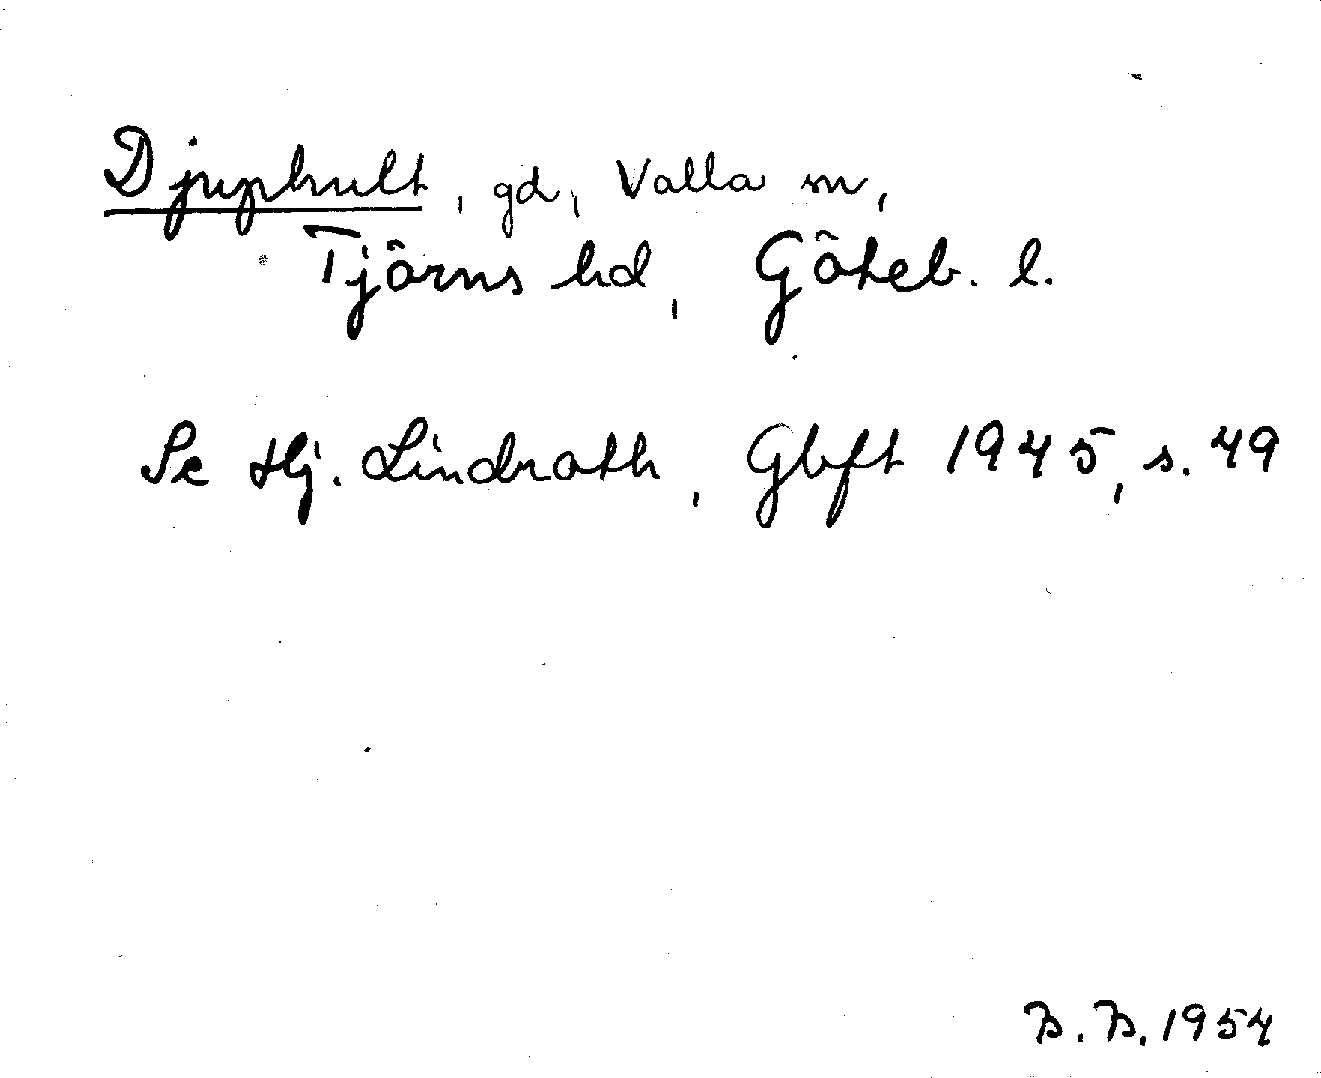 Djuphult, gd, Valla sn,
Tjörns hd, Göteb. l.
Se Hj. Lindroth, Gbft 1945, s. 49
B. B. 1954